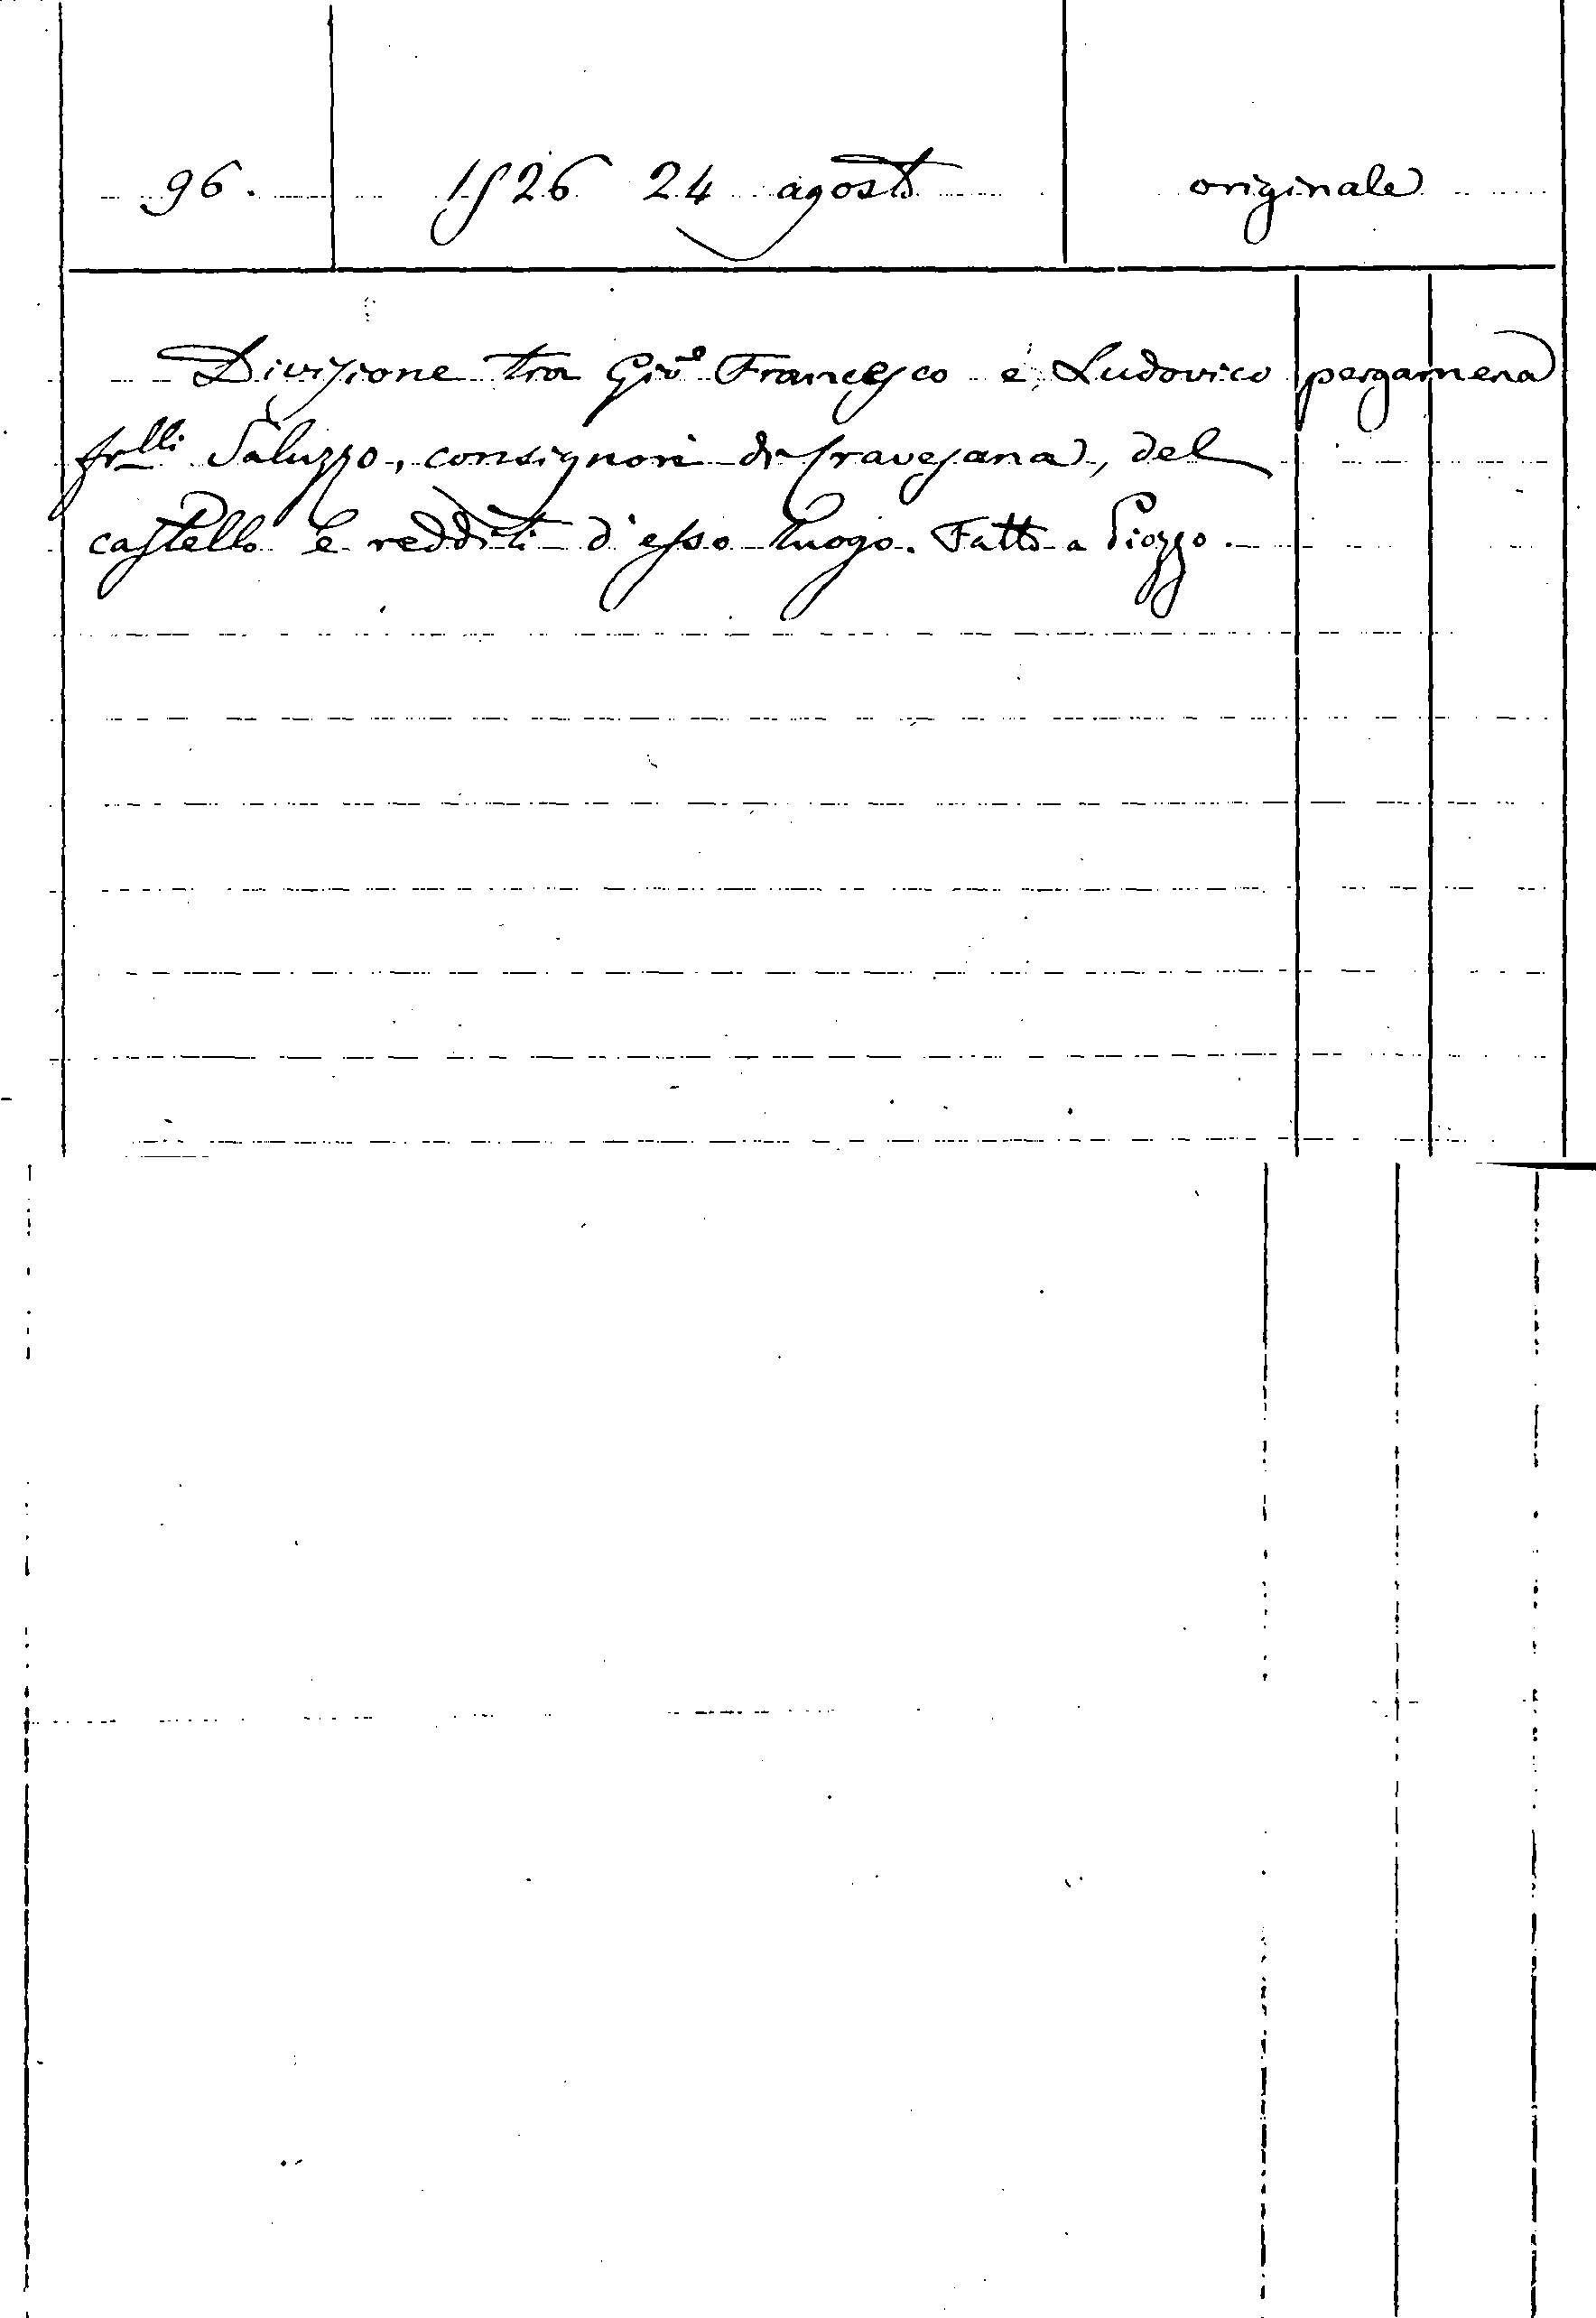 96. 1526 24 agosto originale
Divisione tra Gio.e Francesco e Ludovico pergamena
frlli Saluzzo, consignori di Cravesana, del
castello e redditi d'esso luogo. Fatto a Piozzo.